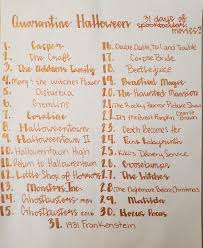 Quarantine Halloween
31 days of
spooktacular
movies!
1. Casper
2. The Craft
3. The Addams Family
4. Mary & the Witch's Flower
5. Disturbia
6. Gremlins
7. Coraline
8. Halloweentown
9. Halloweentown II
10. Halloweentown High
11. Return to Halloweentown
12. Little Shop of Horrors
13. Monsters Inc.
14. Ghostbusters
15. Ghostbusters
31. 1931 Frankenstein
16. Double, Double, Toil and Trouble
17. Corpse Bride
18. Beetlejuice
19. Practical Magic
20. The Haunted Mansion
21. The Rocky Horror Picture Show
22. It's the Great Pumpkin Charlie Brown
23. Death Becomes Her
24. Pan's Labyrinth
25. Kiki's Delivery Service
26. 
27. The Witches
28. The Nightmare Before Christmas
29. Matilda
30. Hocus Pocus